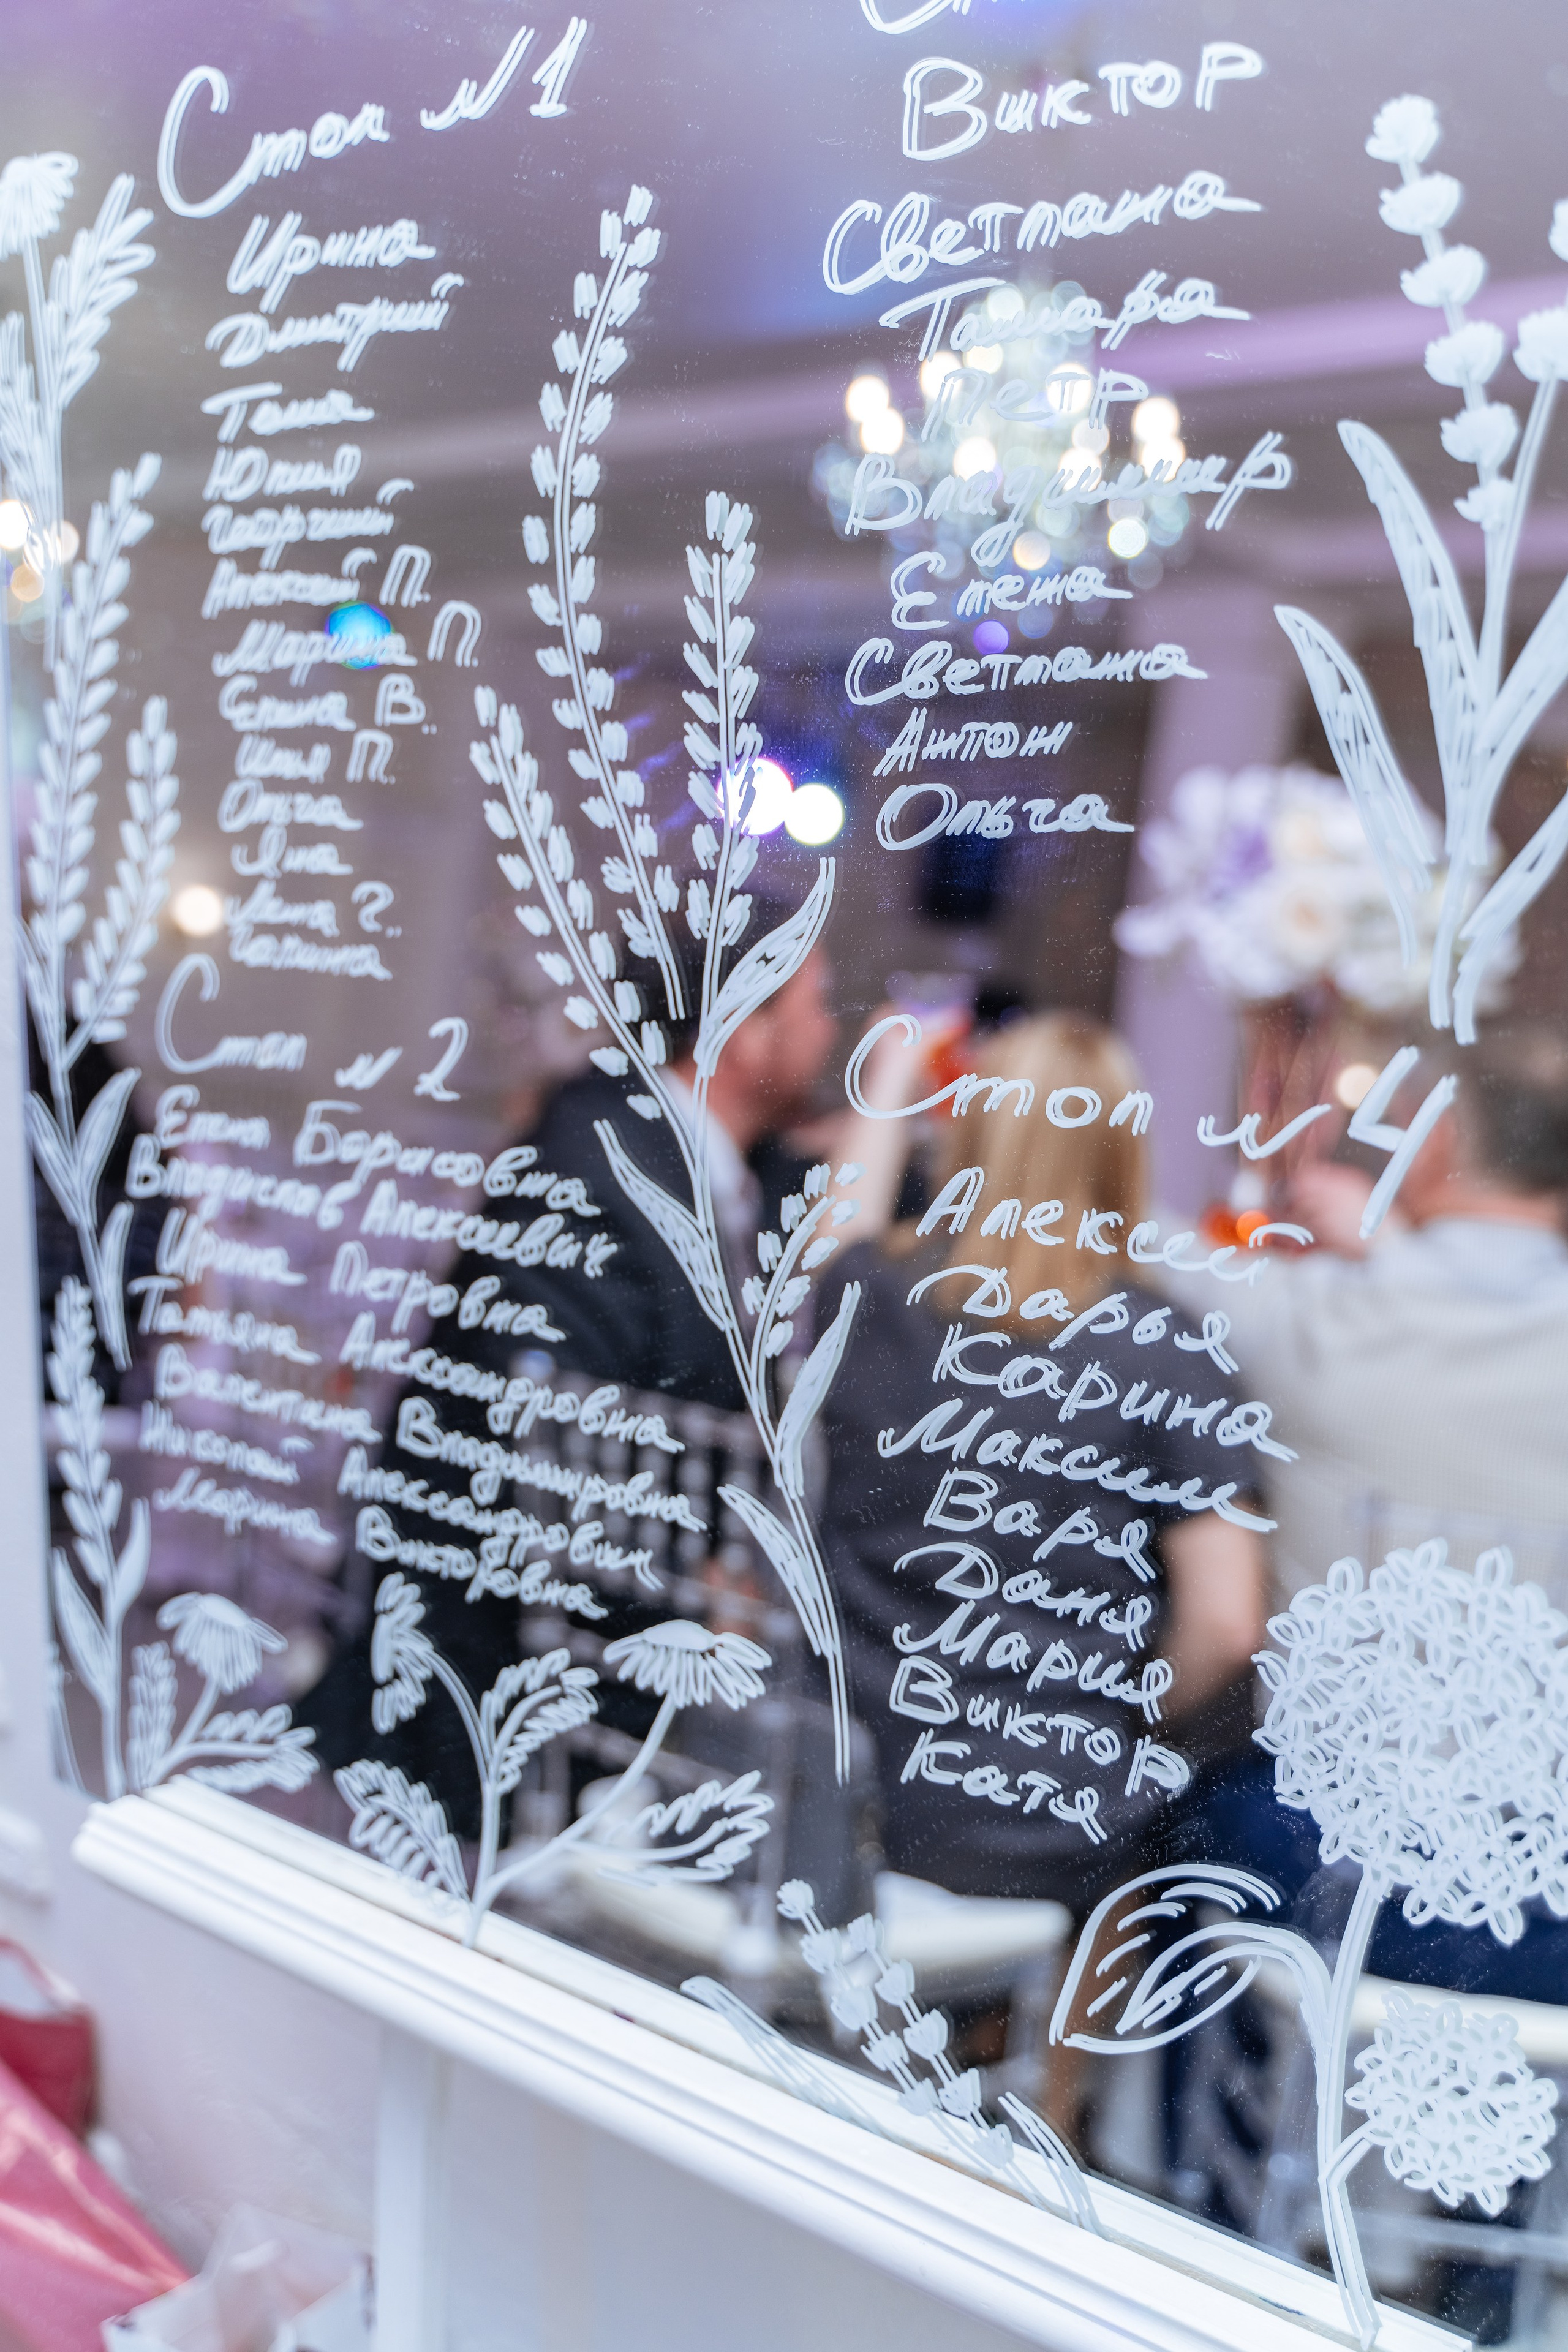 Стол №1
Ирина
Дмитрий
Таша
Юлия
Георгий
Алексей П.
Марина П.
Елена В.
Илья П.
Ольга
Яна
Лена Г.
Галина
Стол №2
Елена Борисовна
Владислав Алексеевич
Ирина Петровна
Татьяна Александровна
Валентина Владимировна
Николай Александрович
Марина Викторовна
Виктор
Светлана
Тамара
Петр
Владимир
Елена
Светлана
Антон
Ольга
Стол №4
Алексей
Дарья
Карина
Максим
Варя
Даня
Мария
Виктор
Катя